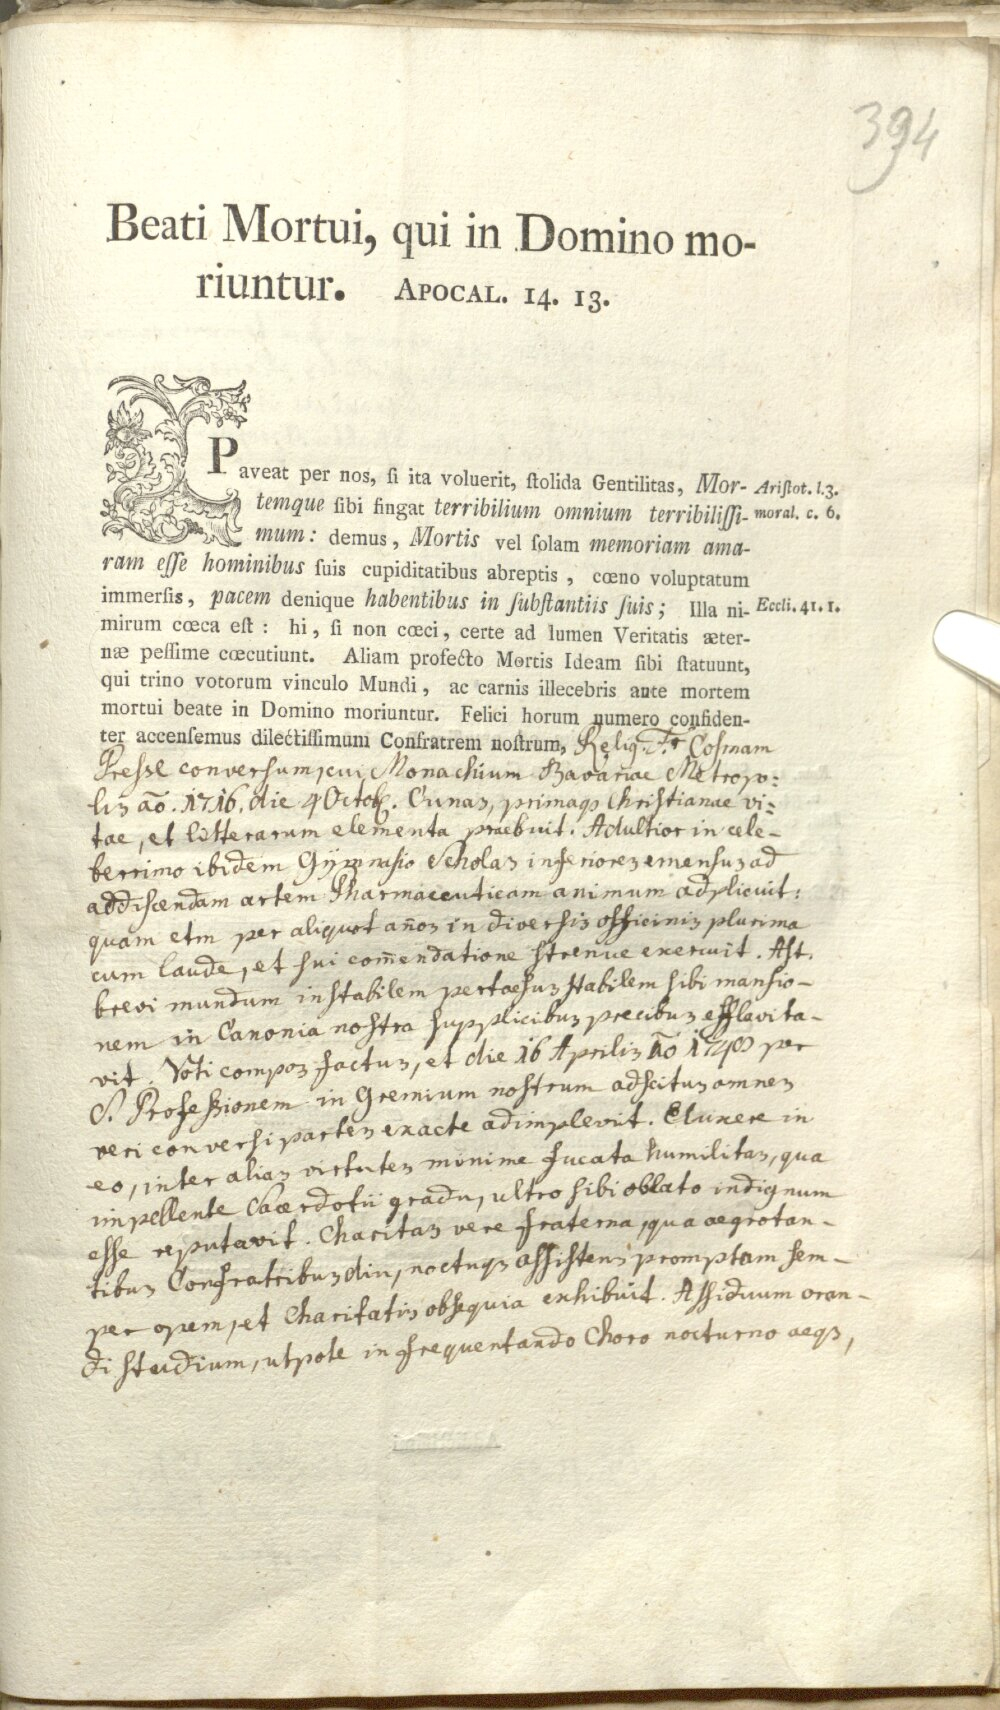 394
Beati Mortui, qui in Domino mo-
riuntur. APOCAL. 14. 13.
Paveat per nos, si ita voluerit, stolida Gentilitas, Mor- Aristot. l.3.
temque sibi fingat terribilium omnium terribilissi- moral. c. 6.
mum: demus, Mortis vel solam memoriam ama-
ram esse hominibus suis cupiditatibus abreptis, cœno voluptatum
immersis, pacem denique habentibus in substantiis suis; Illa ni- Eccli. 41. 1.
mirum cœca est: hi, si non cœci, certe ad lumen Veritatis æter-
næ pessime cœcutiunt. Aliam profecto Mortis Ideam sibi statuunt,
qui trino votorum vinculo Mundi, ac carnis illecebris ante mortem
mortui beate in Domino moriuntur. Felici horum numero confiden-
ter accensemus dilectissimum Confratrem nostrum, Relig. Fr. Cosmam
Pressl conversum, cui Monachium Bavariae Metropo:
lis ao. 1716. die 4 Octob. Cunas, primaqs Christianae vi:
tae, et litterarum elementa praebuit. Adultior in cele-
berrimo ibidem Gymnasio Scholas inferiores emensus ad
addiscendam artem Pharmaceuticam animum adplicuit:
quam etm per aliquot anos in diversis officinis plurima
cum laude, et sui comendatione strenue exercuit. Ast.
brevi mundum instabilem pertaesus stabilem sibi mansio-
nem in Canonia nostra supplicibus precibus efflagita-
vit. Voti compos factus, et die 16 Aprilis ao per
S. Professionem in Gremium nostrum adscitus omnes
veri conversi partes exacte adimplevit. Eluxere in
eo, inter alias virtutes minime fucata humilitas, qua
impellente Sacerdotii gradu, ultro sibi oblato indignum
esse reputavit. Charitas vere fraterna, qua aegrotan-
tibus Confratribus diu, noctuqs assistens promptam sem-
per opem, et Charitatis obsequia exhibuit. Assiduum oran-
di studium, utpote in frequentando Choro nocturno aeqs,